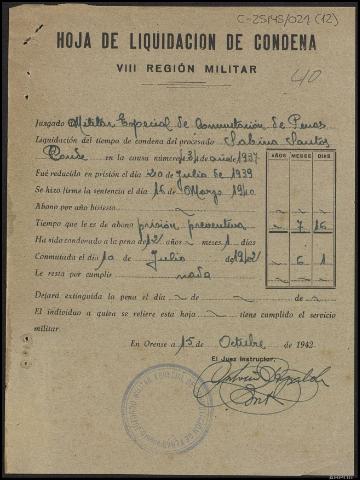 C-25145/021 (12)
HOJA DE LIQUIDACION DE CONDENA
VIII REGIÓN MILITAR
40
Juzgado Militar Especial de Conmutación de Penas
Liquidación del tiempo de condena del procesado Sabino Santos
Conde en la causa número 131 de año 1937
AÑOS MESES DIAS
Fué reducido en prisión el 20 de Julio de 1939
Se hizo firme la sentencia el 16 de Marzo 1940
Abono por año bisiesto
Tiempo que le es de abono prisión preventiva ~ 7 16
Ha sido condenado a la pena de 12 años ~ meses 1 dias
Conmutada el dia 10 Julio de 1942 ~ 6 1
Le resta por cumplir nada
Dejará extinguida la pena el dia ~ de ~ de ~
El individuo a quien se refiere esta hoja ~ tiene cumplido el servicio
militar.
En Orense a 15 de Octubre de 1942
El Juez Instructor,